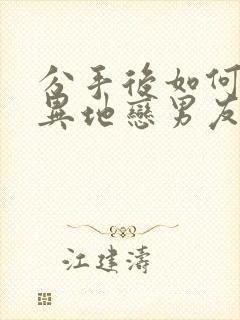 分手後如何
異地戀男友
江建濤